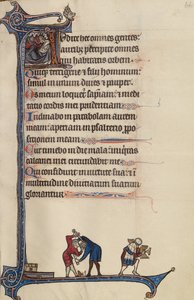 Audite hec omnes gentes:
auribus percipite omnes
qui habitatis orbem.
Quique terrigene & filii hominum:
simul in unum dives & pauper.
Os meum loquetur sapientiam: & medi
tatio cordis mei prudentiam
Inclinabo in parabolam aurem
meam: aperiam in psalterio propo
sitionem meam.
Cur timebo in die mala: iniquitas
calcanei mei circumdabit me.
Qui confidunt in virtute sua: & in
multitudine divitiarum suarum
gloriantur.